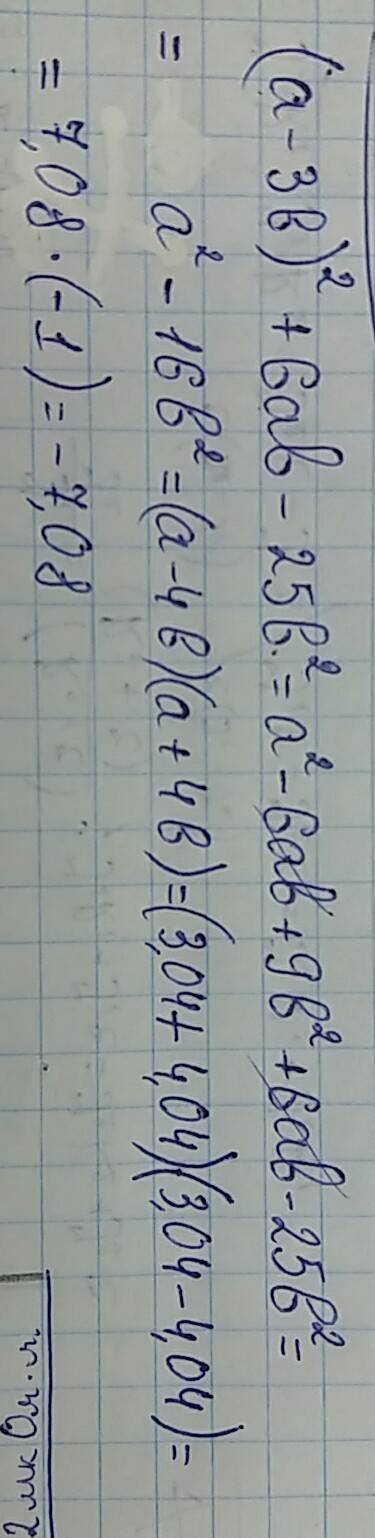 (a - 3b)² + 6ab - 25b² = a² - 6ab + 9b² + 6ab - 25b² =
= a² - 16b² = (a - 4b)(a + 4b) = (3,04 + 4,04)(3,04 - 4,04) =
= 7,08 · (-1) = - 7,08